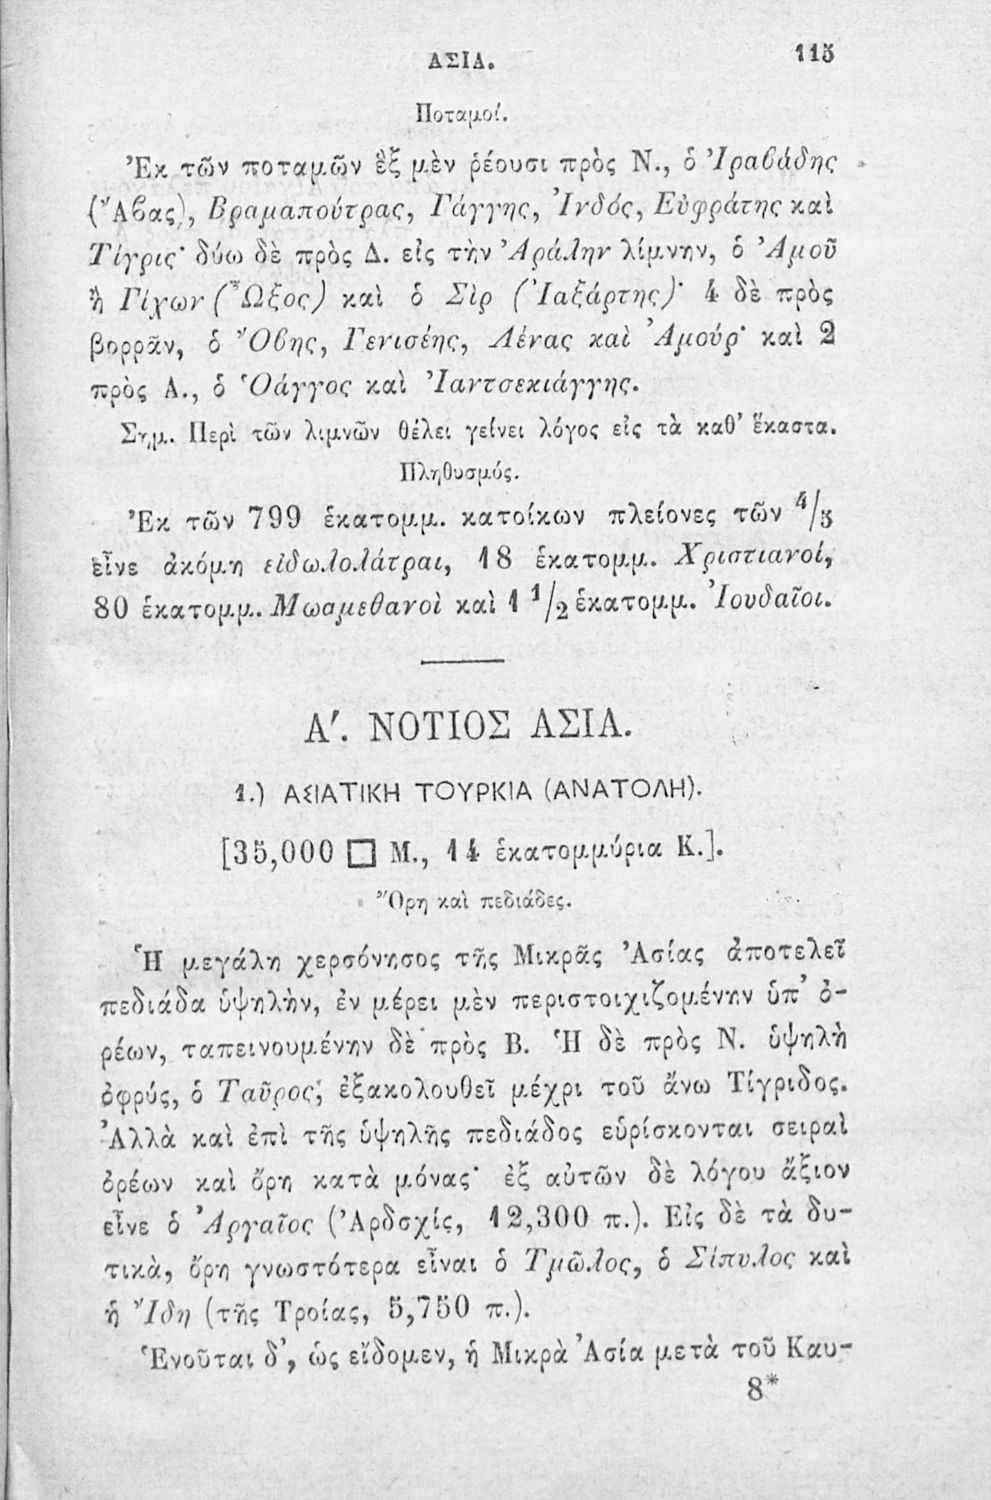 ΑΣΙΑ. 115
Ποταμοί.
Ἐκ τῶν ποταμῶν ἓξ μὲν ῥέουσι πρὸς Ν., ὁ Ἰραϐάδης
(Ἄϐας), Βραμαπούτρας, Γάγγης, Ἰνδός, Εὐφράτης καὶ
Τίγρις· δύω δὲ πρὸς Δ. εἰς τὴν Ἀράλην λίμνην, ὁ Ἀμοῦ
ἢ Γίχων (Ὦξος) καὶ ὁ Σὶρ (Ἰαξάρτης)· 4 δὲ πρὸς
βορρᾶν, ὁ Ὄϐης, Γενισέης, Λένας καὶ Ἀμούρ· καὶ 2
πρὸς Α., ὁ Ὁάγγος καὶ Ἰαντσεκιάγγης.
Σημ. Περὶ τῶν λιμνῶν θέλει γείνει λόγος εἰς τὰ καθ' ἕκαστα.
Πληθυσμός.
Ἐκ τῶν 799 ἑκατομμ. κατοίκων πλείονες τῶν 4/5
εἶνε ἀκόμη εἰδωλολάτραι, 18 ἑκατομμ. Χριστιανοί,
80 ἑκατομμ. Μωαμεθανοὶ καὶ 1 1/2 ἑκατομμ. Ἰουδαῖοι.
Α'. ΝΟΤΙΟΣ ΑΣΙΑ.
1.) ΑΣΙΑΤΙΚΗ ΤΟΥΡΚΙΑ (ΑΝΑΤΟΛΗ).
[35,000 □ Μ., 14 ἑκατομμύρια Κ.].
Ὄρη καὶ πεδιάδες.
Ἡ μεγάλη χερσόνησος τῆς Μικρᾶς Ἀσίας ἀποτελεῖ
πεδιάδα ὑψηλὴν, ἐν μέρει μὲν περιστοιχιζομένην ὑπ' ὀ-
ρέων, ταπεινουμένην δὲ πρὸς Β. Ἡ δὲ πρὸς Ν. ὑψηλὴ
ὀφρύς, ὁ Ταῦρος, ἐξακολουθεῖ μέχρι τοῦ ἄνω Τίγριδος.
Ἀλλὰ καὶ ἐπὶ τῆς ὑψηλῆς πεδιάδος εὑρίσκονται σειραὶ
ὀρέων καὶ ὄρη κατὰ μόνας· ἐξ αὐτῶν δὲ λόγου ἄξιον
εἶνε ὁ Ἀργαῖος (Ἀρδσχίς, 12,300 π.). Εἰς δὲ τὰ δυ-
τικὰ, ὄρη γνωστότερα εἶναι ὁ Τμῶλος, ὁ Σίπυλος καὶ
ἡ Ἴδη (τῆς Τροίας, 5,750 π.).
Ἑνοῦται δ', ὡς εἴδομεν, ἡ Μικρὰ Ἀσία μετὰ τοῦ Καυ-
8*